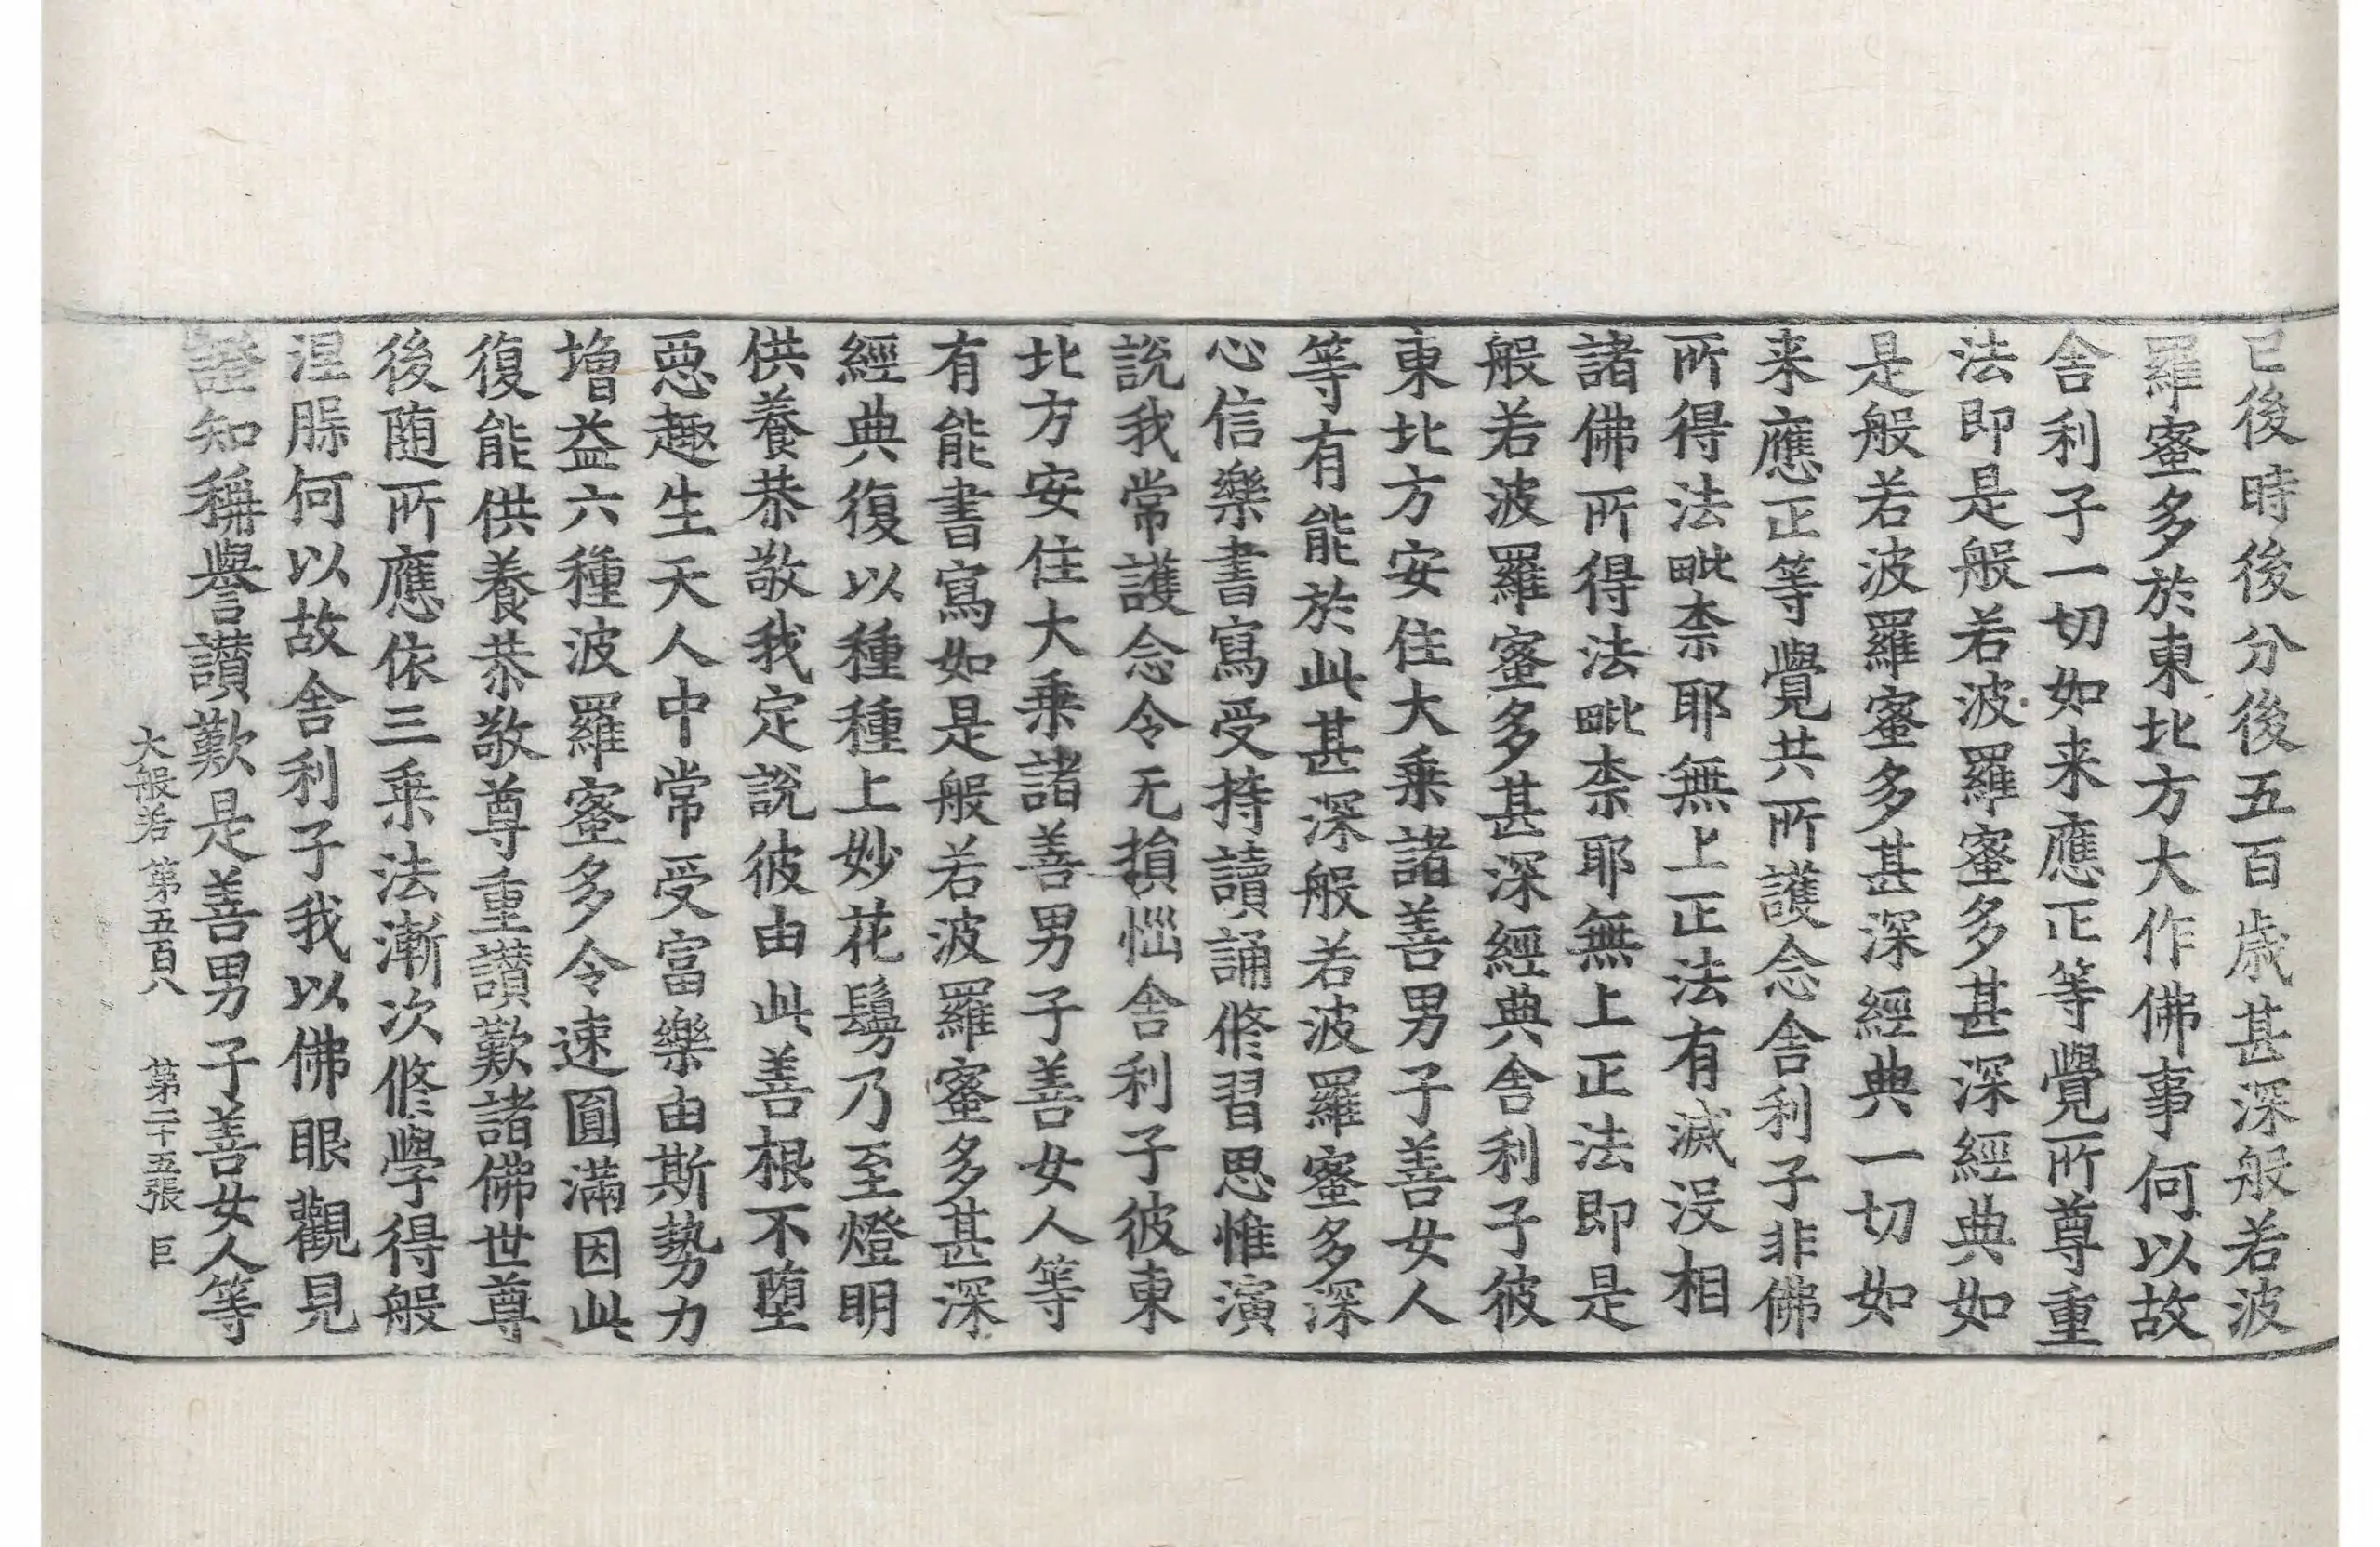 已後時後分後五百歲甚深般若波
羅蜜多於東北方大作佛事何以故
舍利子一切如来應正等覺所尊重
法即是般若波羅蜜多甚深經典如
是般若波羅蜜多甚深經典一切如
来應正等覺共所護念舍利子非佛
所得法毗柰耶無上正法有滅沒相
諸佛所得法毗柰耶無上正法即是
般若波羅蜜多甚深經典舍利子彼
東北方安住大乗諸善男子善女人
等有能於此甚深般若波羅蜜多深
心信樂書寫受持讀誦修習思惟演
說我常護念令无損惱舍利子彼東
北方安住大乗諸善男子善女人等
有能書寫如是般若波羅蜜多甚深
經典復以種種上妙花鬘乃至燈明
供養恭敬我定說彼由此善根不墮
惡趣生天人中常受富樂由斯勢力
增益六種波羅蜜多令速圓滿因此
復能供養恭敬尊重讃歎諸佛世尊
後隨所應依三乗法漸次修學得般
涅槃何以故舍利子我以佛眼觀見
證知稱譽讃歎是善男子善女人等
大般若第五百八 第二十五張 巨